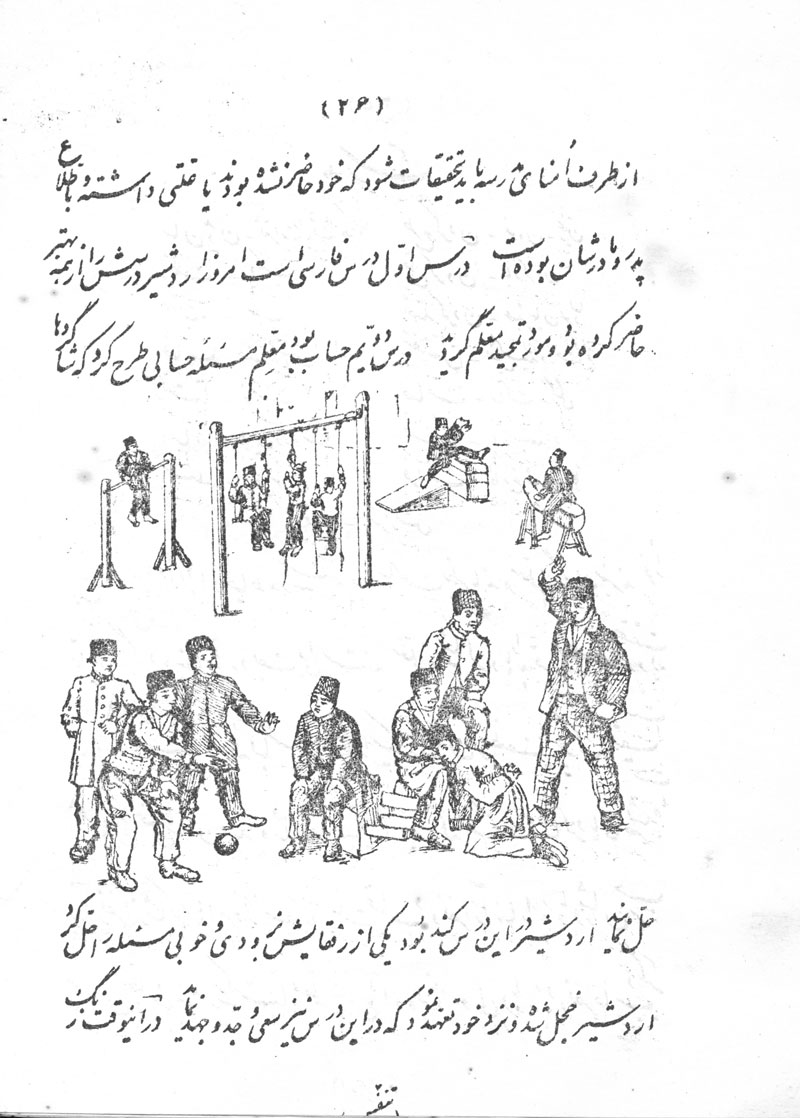 (۲۶)
از طرف اُمنای مدرسه باید تحقیقات شود که خود حاضر نشده بودند یا علتی داشته و باطلاع
پدر و مادرشان بوده است درس اوّل درس فارسی است امروز اردشیر درسش را از همه بهتر
حاضر کرده بود و مورد تمجید معلّم گردید درس دویّم حساب بود معلّم مسئله حسابی طرح کرد که شاگردها
حلّ نمایند اردشیر در این درس کند بود یکی از رفقایش بزودی و خوبی مسئله را حلّ کرد
اردشیر خجل شده و نزد خود تعهد نمود که در این درس نیز سعی و جدّ و جهد نماید در آنوقت زنگ
تنفس